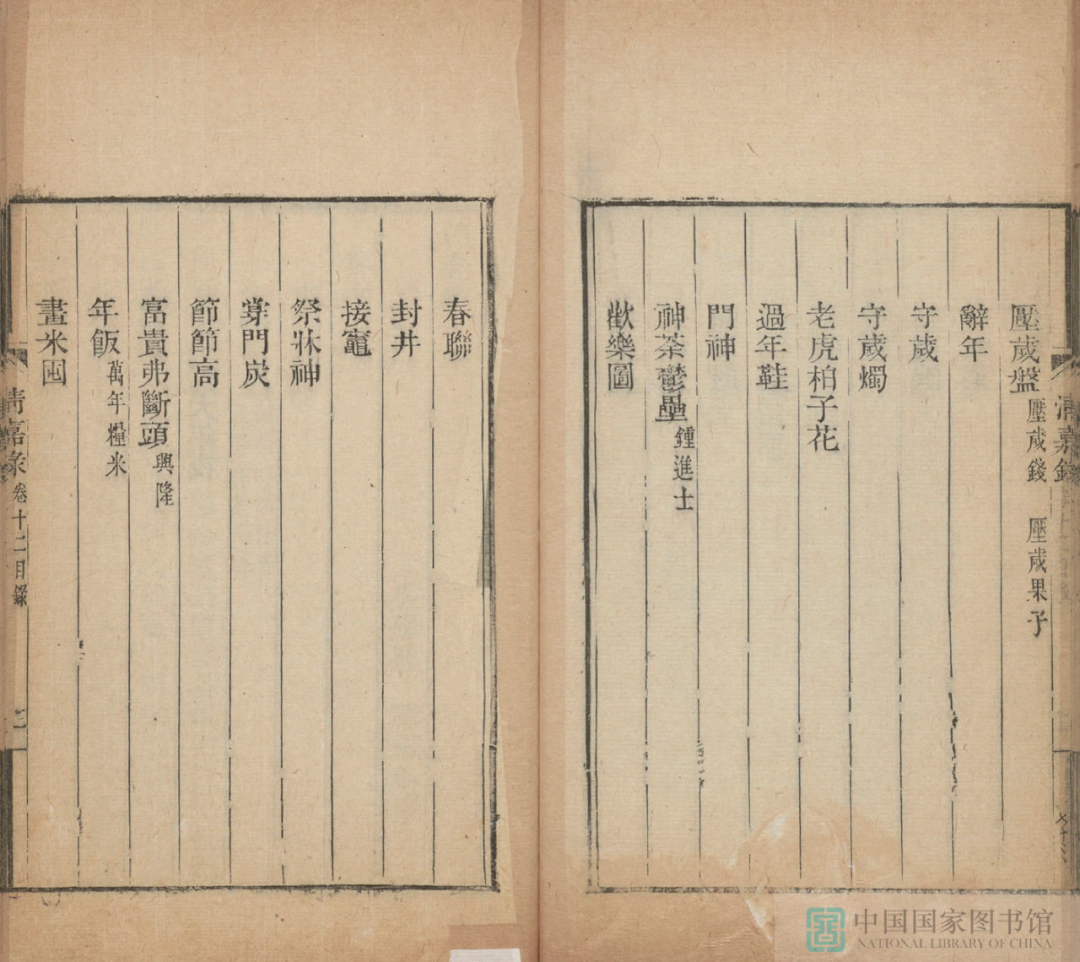 壓歲盤 壓歲錢 壓歲果子
辭年
守歲
守歲燭
老虎柏子花
過年鞋
門神
神荼鬱壘 鍾進士
歡樂圖
春聯
封井
接竈
祭牀神
芽門炭
節節高
富貴弗斷頭 興隆
年飯 萬年糧米
畫米囤
清嘉錄
清嘉錄 卷十二目錄
中国国家图书馆
NATIONAL LIBRARY OF CHINA